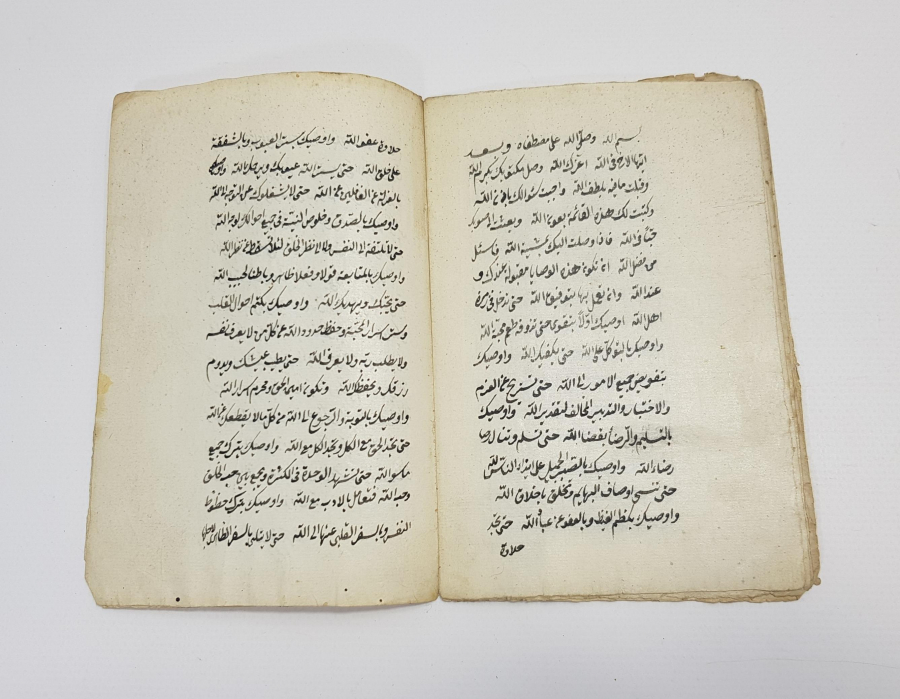 بسم الله وصلى الله على مصطفاه وبعد
ايها الاخ فى الله اعزك الله وصل مكتوبك بكرم الله
وقلت ما فيه بلطف الله واجبت سؤالك باذن الله
وكتبت لك هذه القائمة بعون الله وبعثت
حبا فى الله فاذا وصلت اليك بمشية الله فاسئل
من فضل الله ان تكون هذه الوصايا مقبولة عندك و
عند الله وان تعمل بها بتوفيق الله حتى تدخل فى زمرة
اهل الله اوصيك اولا بتقوى حتى تذوق طعم محبة الله
واوصيك بالتوكل على الله حتى يكفيك الله واوصيك
بتفويض جميع الامور الى الله حتى تستريح عن العزم
والاختيار والتدبير المخالف لتقدير الله واوصيك
بالتسليم والرضا بقضا الله حتى تسلم وتنال رضا
رضاء الله واوصيك بالصبر الجميل على ايذاء الناس لله
حتى تنسى اوصاف البهايم وتخلق باخلاق الله
واوصيك بكظم الغيظ وبالعفو عن عباد الله حتى تجد
حلاوة
حلاوة عفو الله واوصيك بستر العيوب وبالشفقة
على خلق الله حتى يستر الله عيوبك الله
بالعزلة عن الغافلين عن الله حتى لا يشغلوك عن التوجه الى الله
واوصيك بالصدق وخلوص النية فى جميع احوالك لوجه الله
حتى لا تلتفت الى النفس ولا الى نظر الخلق نظر الله
واوصيك بالمتابعة قولا وفعلا ظاهرا وباطنا لحبيب الله
حتى يحبك ويهديك الله واوصيك بكتم احوال القلب
وستر اسرار المحبة وحفظ حدود الله عن كل من لا يعرف نفسه
ولا يطلب ربه ولا يعرف الله حتى يطيب عيشك ويدوم
رزقك ويحفظك الله وتكون امين الحق ومحرم اسرار الله
واوصيك بالتوبة والرجوع الى الله من كل ما لا يقطعك عن الله
حتى تجد الحق مع الكل وتجد الكل مع الله واوصيك بترك جميع
ما سوى الله حتى تشهد الوحدة فى الكثرة وتجمع بين حب الخلق
وحب الله فتعامل بالادب مع الله واوصيك بترك حظوظ
النفس وبالسفر القلبى عنها الى الله حتى لا تبتلى بالسفر الظاهر